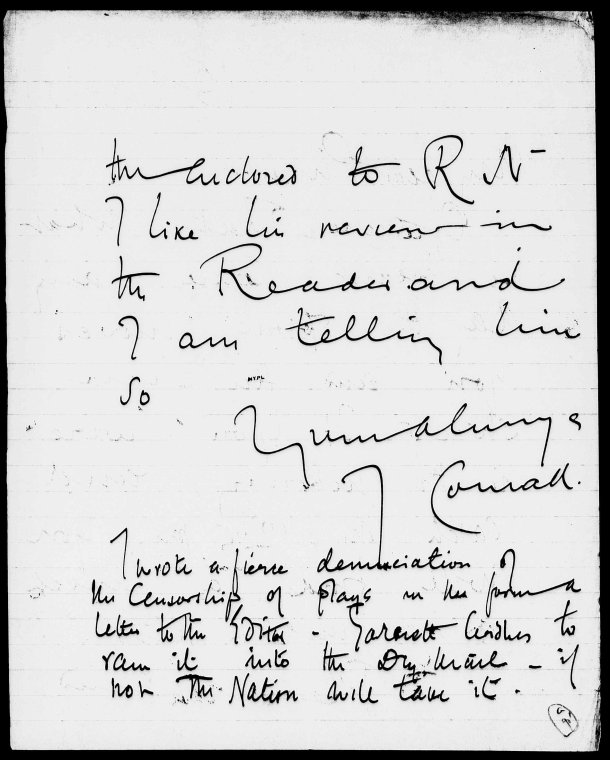 the enclosed to R N
I like his review in
the Reader and
I am telling him
so
NYPL
Yours always
J Conrad.
I wrote a fierce denunciation of
the Censorship of plays in the form a
letter to the Editor - Garnett wishes to
ram it into the Dly Mail - if
not The Nation will take it.